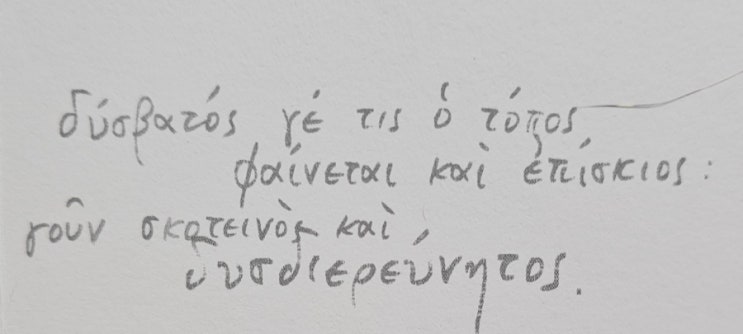 δύσβατός γέ τις ὁ τόπος
φαίνεται καὶ ἐπίσκιος:
γοῦν σκοτεινὸς καὶ
δυσδιερεύνητος.